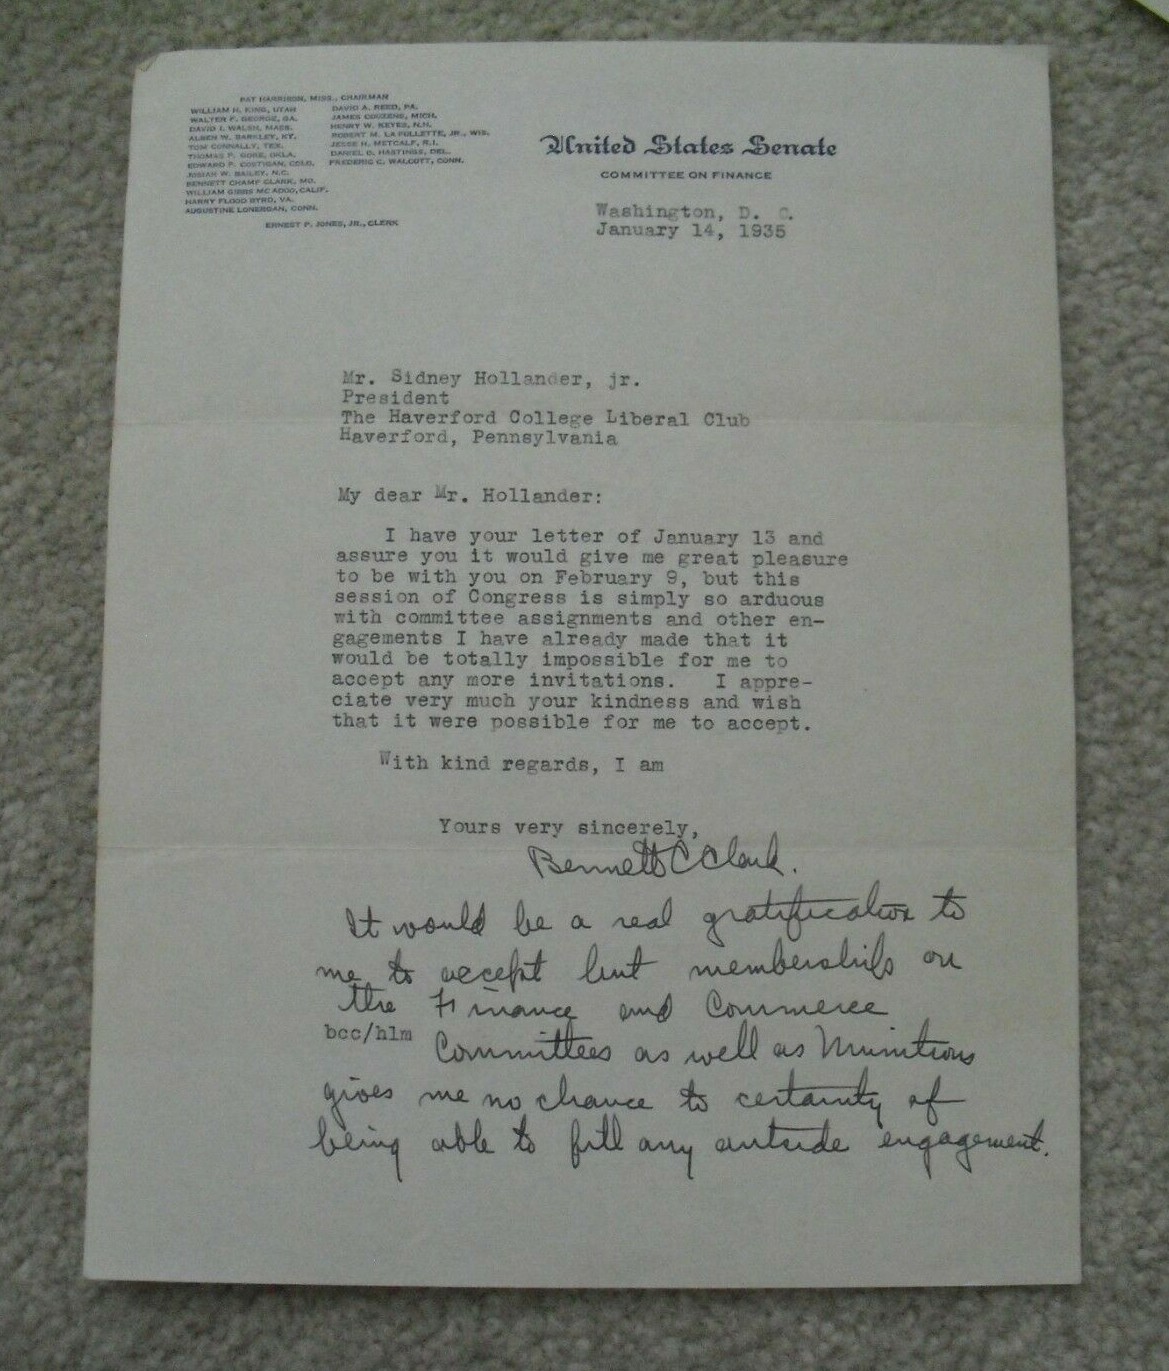 PAT HARRISON, MISS., CHAIRMAN
WILLIAM H. KING, UTAH
WALTER F. GEORGE, GA.
DAVID I. WALSH, MASS.
ALBEN W. BARKLEY, KY.
TOM CONNALLY, TEX.
THOMAS P. GORE, OKLA.
EDWARD P. COSTIGAN, COLO.
JOSIAH W. BAILEY, N.C.
BENNETT CHAMP CLARK, MO.
WILLIAM GIBBS MC ADOO, CALIF.
HARRY FLOOD BYRD, VA.
AUGUSTINE LONERGAN, CONN.
DAVID A. REED, PA.
JAMES COUZENS, MICH.
HENRY W. KEYES, N.H.
ROBERT M. LA FOLLETTE, JR., WIS.
JESSE H. METCALF, R.I.
DANIEL O. HASTINGS, DEL.
FREDERIC C. WALCOTT, CONN.
ERNEST P. JONES, JR., CLERK
United States Senate
COMMITTEE ON FINANCE
Washington, D. C.
January 14, 1935
Mr. Sidney Hollander, jr.
President
The Haverford College Liberal Club
Haverford, Pennsylvania
My dear Mr. Hollander:
I have your letter of January 13 and
assure you it would give me great pleasure
to be with you on February 9, but this
session of Congress is simply so arduous
with committee assignments and other en-
gagements I have already made that it
would be totally impossible for me to
accept any more invitations. I appre-
ciate very much your kindness and wish
that it were possible for me to accept.
With kind regards, I am
Yours very sincerely,
Bennett C Clark.
It would be a real gratification to
me to accept but membership on
the Finance and Commerce
bcc/hlm
Committees as well as Munitions
gives me no chance to certainty of
being able to fill any outside engagement.